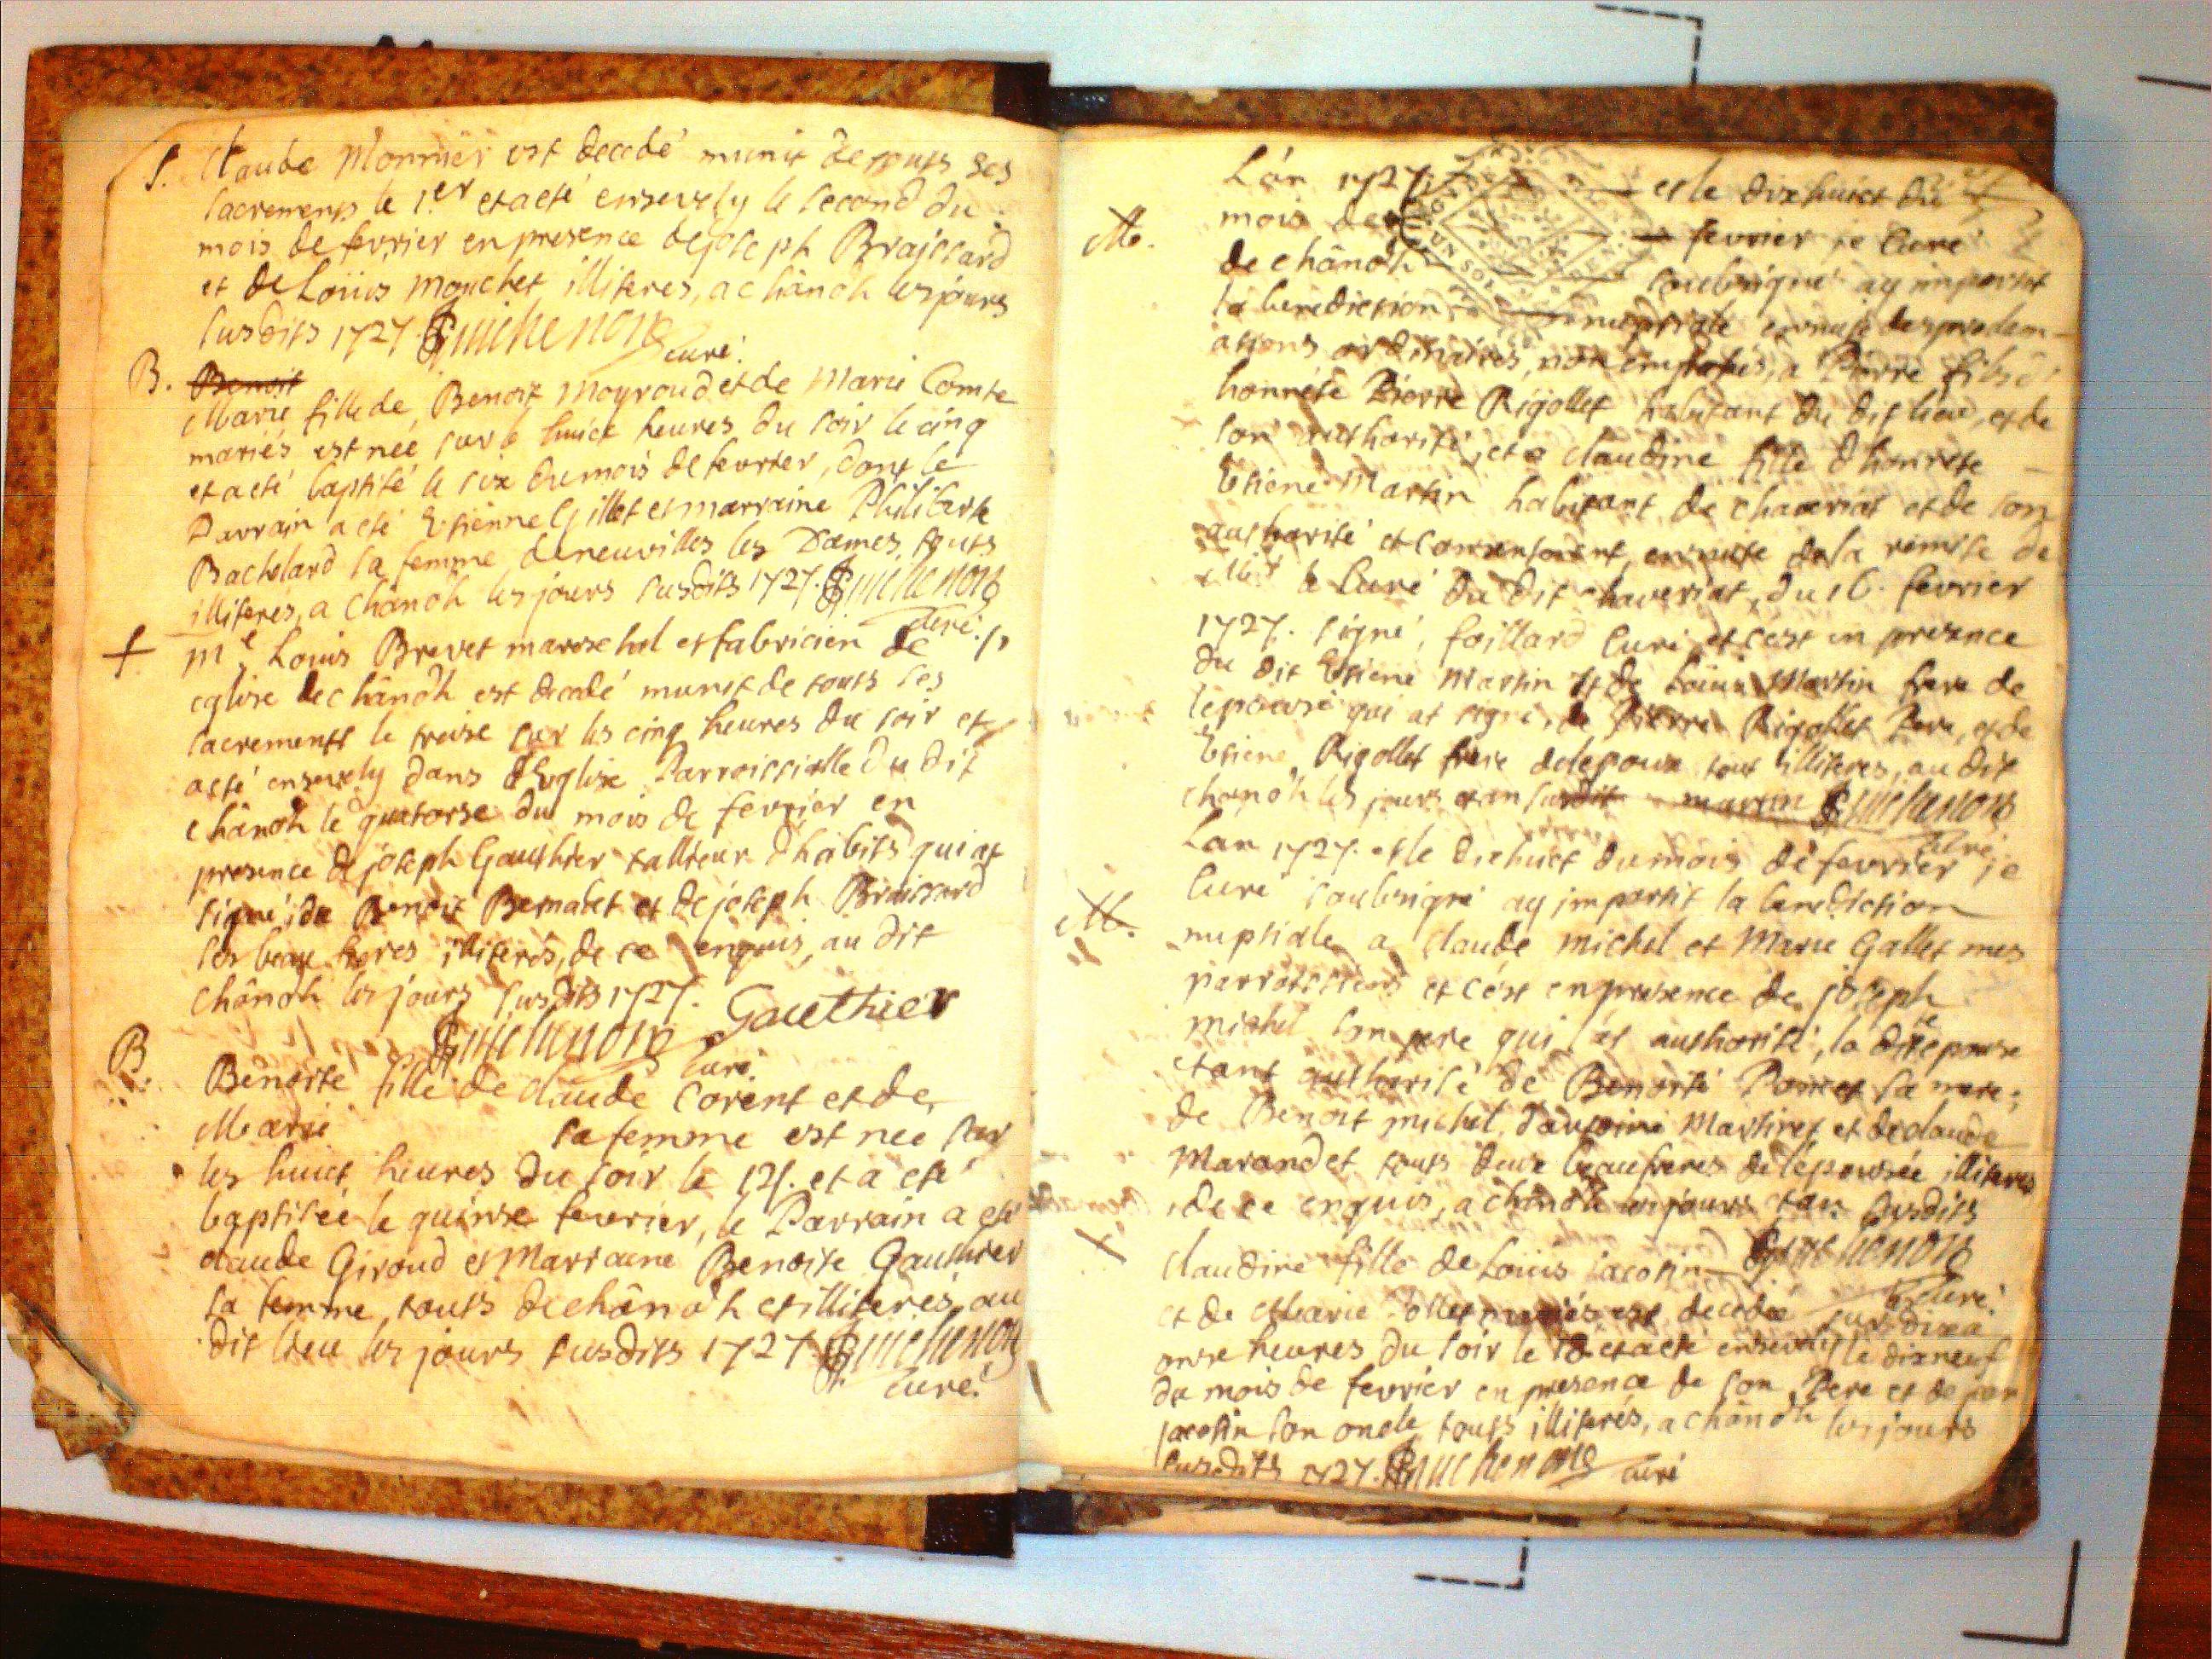 S. Claude Monnier est decedé munit de touts ses
sacrements le 1.er et a eté ensevely le second du
mois de fevrier en presence de joseph Brajssard
et de Loüis Mouchet illiteres, a chânoh les jours
susdits 1727. Guichenon
curé.
B. Benoit
Marie fille de Benoit Moyroud et de Marie Comte
mariés est neé sur le huict heures du soir le cinq
et a eté baptisé le six du mois de fevrier, dont le
Parrain a eté Etienne Gillet et marraine Philiberte
Bachelard sa femme, de neuvilles les Dames, touts
illiteres, a Chânoh les jours susdits 1727. Guichenon
curé.
M.e Louis Brevet mareschal et fabricien de
eglise de chânoh est decedé munit de touts ses
sacrements le treise sur les cinq heures du soir et
a eté ensevely dans l'Eglise Parroissialle du dit
chânoh le quatorse du mois de fevrier en
presence de joseph Gauthier tallieur d'habits qui at
signé, de Benoit Bernalet et de joseph Braissard
ses beau freres illiterés, de ce enquis, au dit
chânoh les jours susdits 1727.
Guichenon Gauthier
curé.
B. Benoite fille de claude Corent et de
Marie sa femme est neé sur
les huict heures du soir le 14. et a eté
baptiseé le quinse fevrier, le Parrain a eté
claude Giroud et Marraine Benoite Gauthier
sa femme, touts de chânoh et illiterés, au
dit lieu les jours susdits 1727 Guichenon
curé.
L'an 1727. et le dixhuict du
M. mois de fevrier je Curé
UN SOL
de chânoh soubsigné ay impartit
la benediction nuptiale ensuite des proclam-
ations ordinaires, non empeschés, a Pierre fils d'
honnéte Pierre Rigollet habitant du dit lieu, et de
son authorité, et a claudine fille d'honnete
Etiene Martin habitant de chaveriat et de son
authorité et consentement ensuite de la remise de
le Curé du dit chaveriat, du 16. fevrier
1727. signé, foillard Curé et c'est en presence
du dit Etiene Martin et de Loüis Martin frere de
l'epousé qui at signé, de Pierre Rigollet Pere, et de
Etiene Rigollet frere de l'epoux tout illiteres, au dit
chânoh les jours et an susdit martin Guichenon
curé.
L'an 1727. et le dixhuict du mois de fevrier je
Curé soubsigné ay impartit la benediction
M. nuptiale a claude michel et Marie Gallet mes
parroissiens et c'est en presence de joseph
michel son pere qui l'at authorisé, la dite epouse
etant authorisé de Benoite Poncet sa mere;
de Benoit michel, d'antoine Martinet et de claude
Marandet touts deux beaufreres de l'épouseé illiteres
de ce enquis, a chânoh les jours et an susdits
Guichenon
curé.
claudine fille de Loüis jacotin
et de Marie mariés est decedeé sur dix a
onse heures du soir le 18 et a eté ensevely le dixneuf
du mois de fevrier en presence de son Pere et de jean
jacotin son oncle, touts illiterés, a chânoh les jours
susdits 1727. Guichenon curé